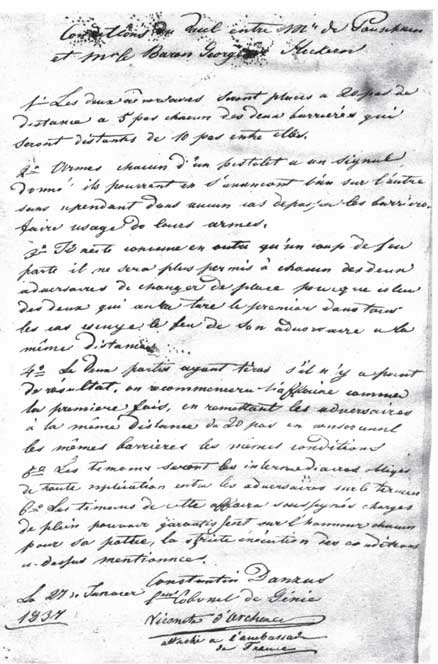 Conditions du Duel entre Mr de Pouschkin
et Mr le Baron Georges Heckern
1o Les deux adversaires seront placés a 20 pas de
distance a 5 pas chacun des deux barrières qui
seront distantes de 10 pas entre elles.
2o Armés chacun d'un pistolet a un signal
donné ils pourront en s'avançant l'un sur l'autre
sans cependant dans aucun cas dépasser les barrières
faire usage de leurs armes.
3o Il reste convenu en outre qu'un coup de feu
parti il ne sera plus permis à chacun des deux
adversaires de changer de place pour que celui
des deux qui aura tiré le premier dans tous
les cas essuye le feu de son adversaire a la
même distance
4o Les deux parties ayant tirés s'il n'y a point
de résultat, on recommencera l'affaire comme
la première fois, en remettant les adversaires
à la même distance de 20 pas en conservant
les mêmes barrières les mêmes conditions
5o Les témoins seront les intermédiaires obligés
de toute explication entre les adversaires sur le terrain
6o Les témoins de cette affaire soussignés chargés
de plein pouvoir garantissent sur l'honneur chacun
pour sa partie, la stricte exécution des conditions
ci-dessus mentionnées.
Le 27 Janvier
1837
Constantin Danzas
Colonel de Génie
Vicomte d'Archiac
attaché a l'ambassade
de France